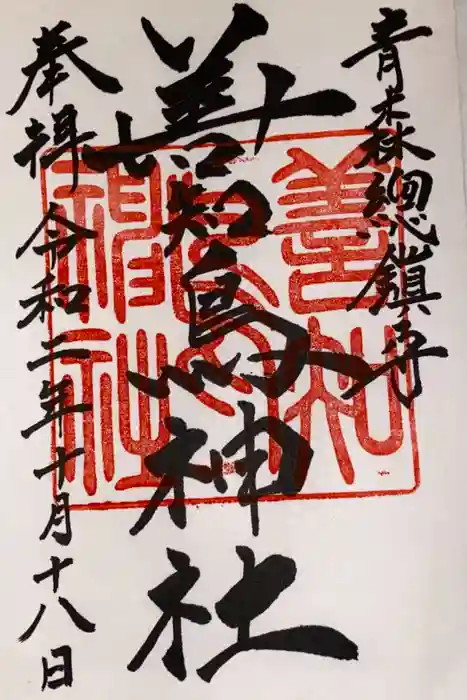 青森總鎮守
善知鳥神社
奉拝 令和二年十月十八日
善知
鳥
神社